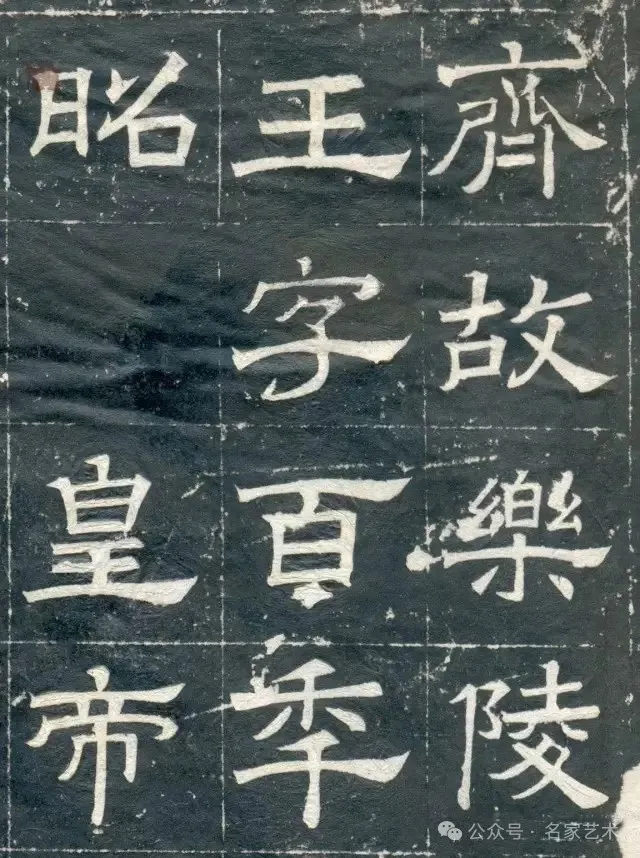 齊故樂陵
王字百秊
昭 皇帝
公众号 · 名家艺术